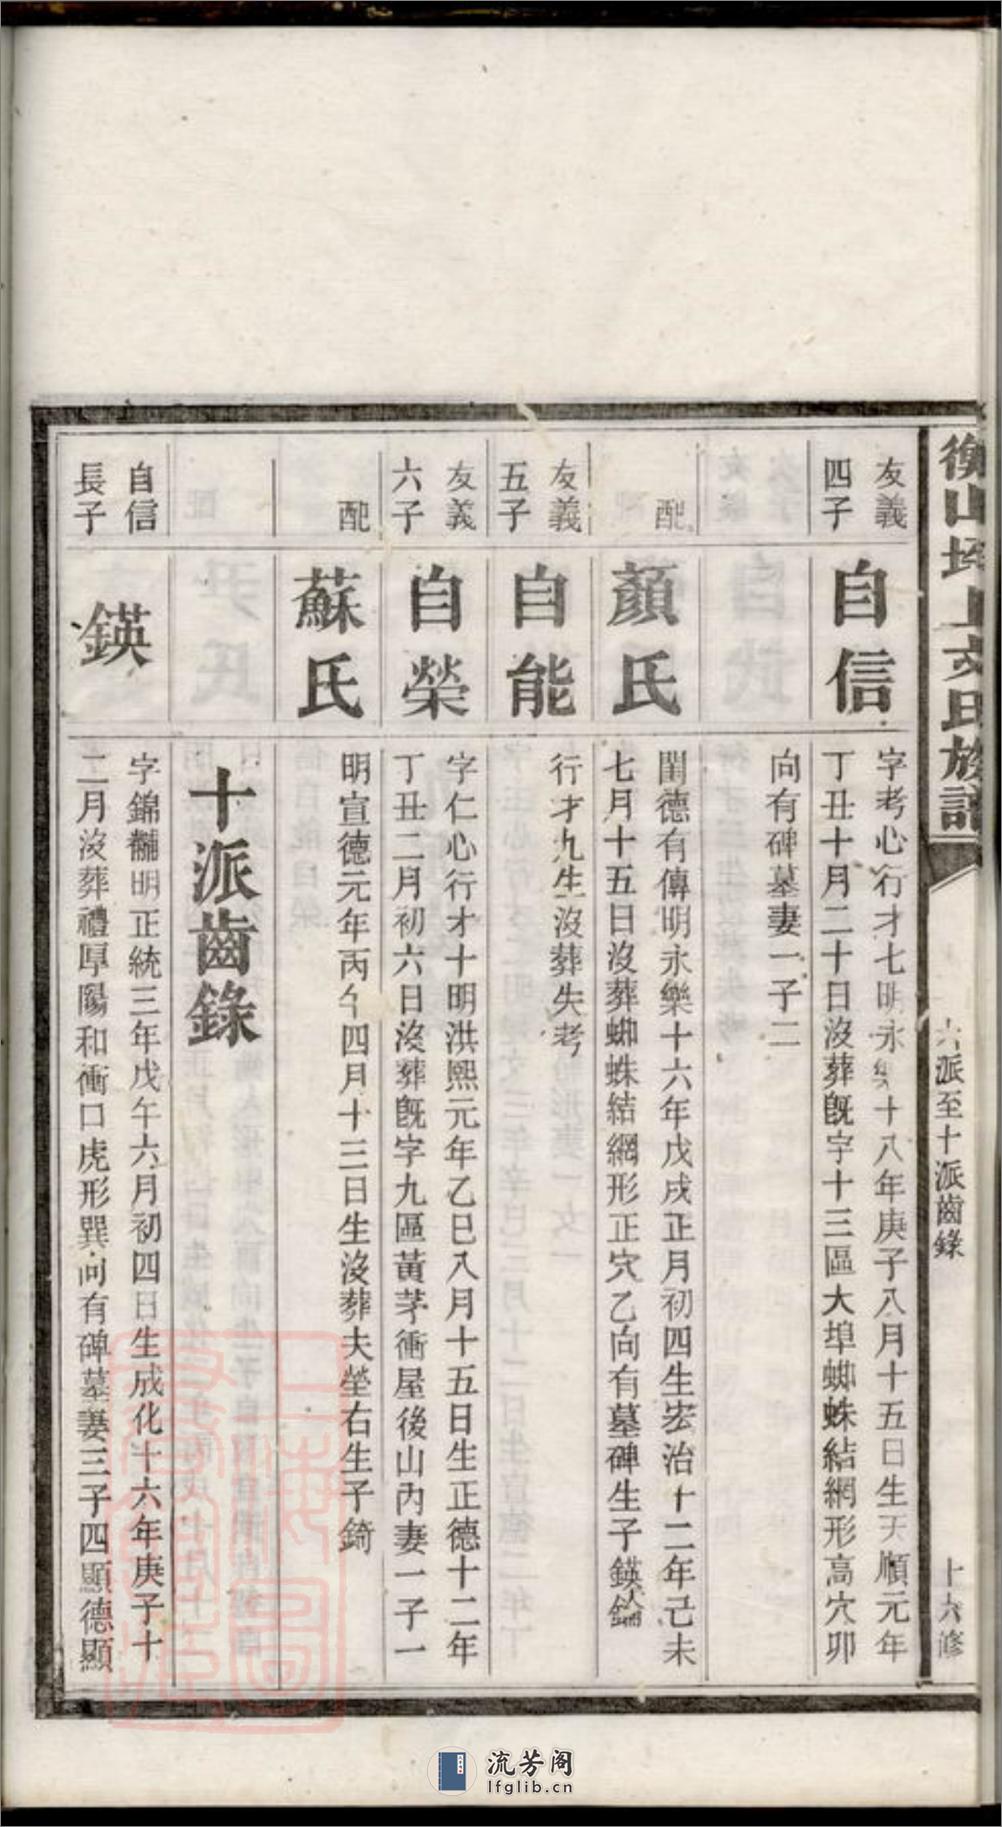 衡山坪上文氏族譜
六派至十派齒錄
上六修
友義
四子
自信
字考心行才七明永樂十八年庚子八月十五日生天順元年
丁丑十月二十日沒葬旣字十三區大埠蜘蛛結網形高穴卯
向有碑墓妻一子二
配
顏氏
閨德有傳明永樂十六年戊戌正月初四生宏治十二年己未
七月十五日沒葬蜘蛛結網形正穴乙向有墓碑生子鍈錀
友義
五子
自能
行才九生沒葬失考
友義
六子
自榮
字仁心行才十明洪熙元年乙巳八月十五日生正德十二年
丁丑二月初六日沒葬旣字九區黃茅衝屋後山內妻一子一
配
蘇氏
明宣德元年丙午四月十三日生沒葬夫塋右生子錡
十派齒錄
自信
長子
鍈
字錦黼明正統三年戊午六月初四日生成化十六年庚子十
二月沒葬禮厚陽和衝口虎形巽向有碑墓妻三子四顯德顯
流芳阁
lfglib.cn